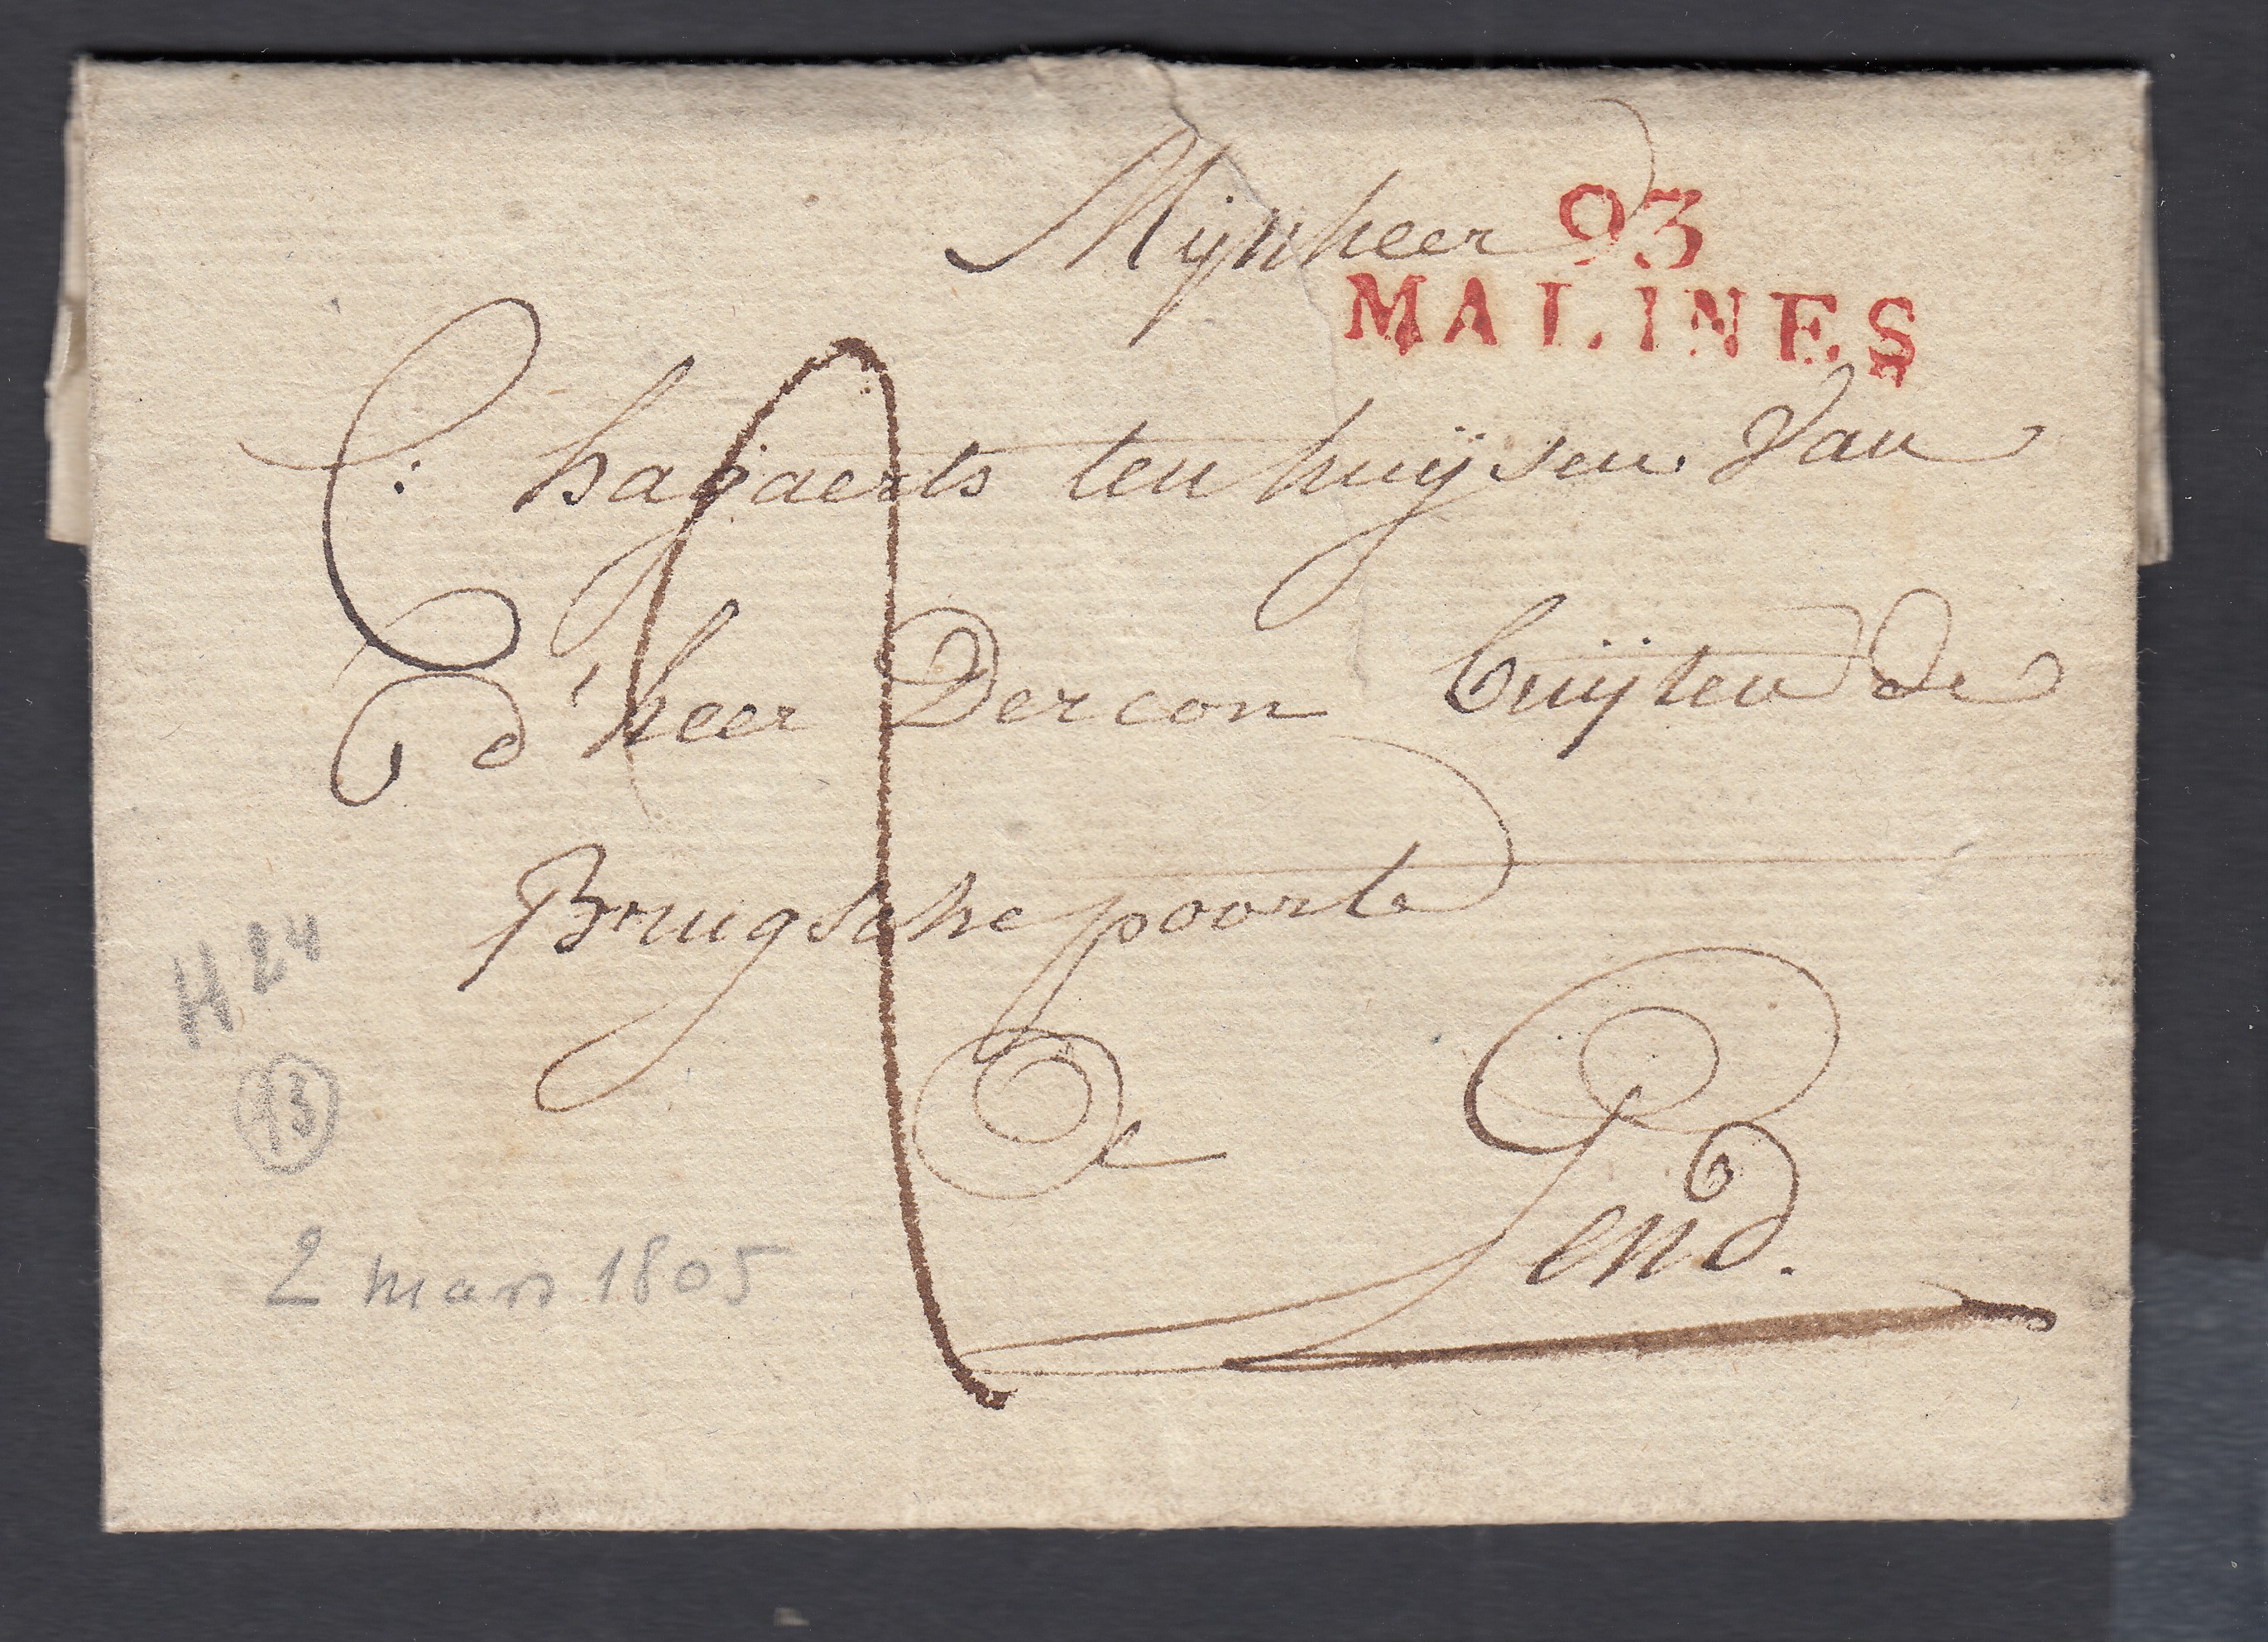 Mijnheer
93
MALINES
C: hayaerts ten huijsen van
d'heer Dercon buijten de
Brugsche poorte
H24
93
De Gend.
2 mars 1805